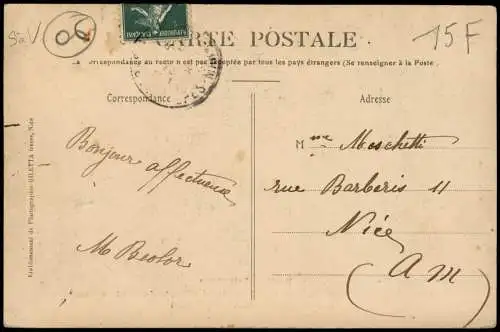 15F
CARTE POSTALE
La correspondance au recto n'est pas acceptée par tous les pays étrangers (Se renseigner à la Poste
Correspondance
Adresse
Bonjour affectueux
M
Mme Moschetti
rue Barberis 11
Nice
(A M)
Etablissement de Photographie GILETTA frères, Nice